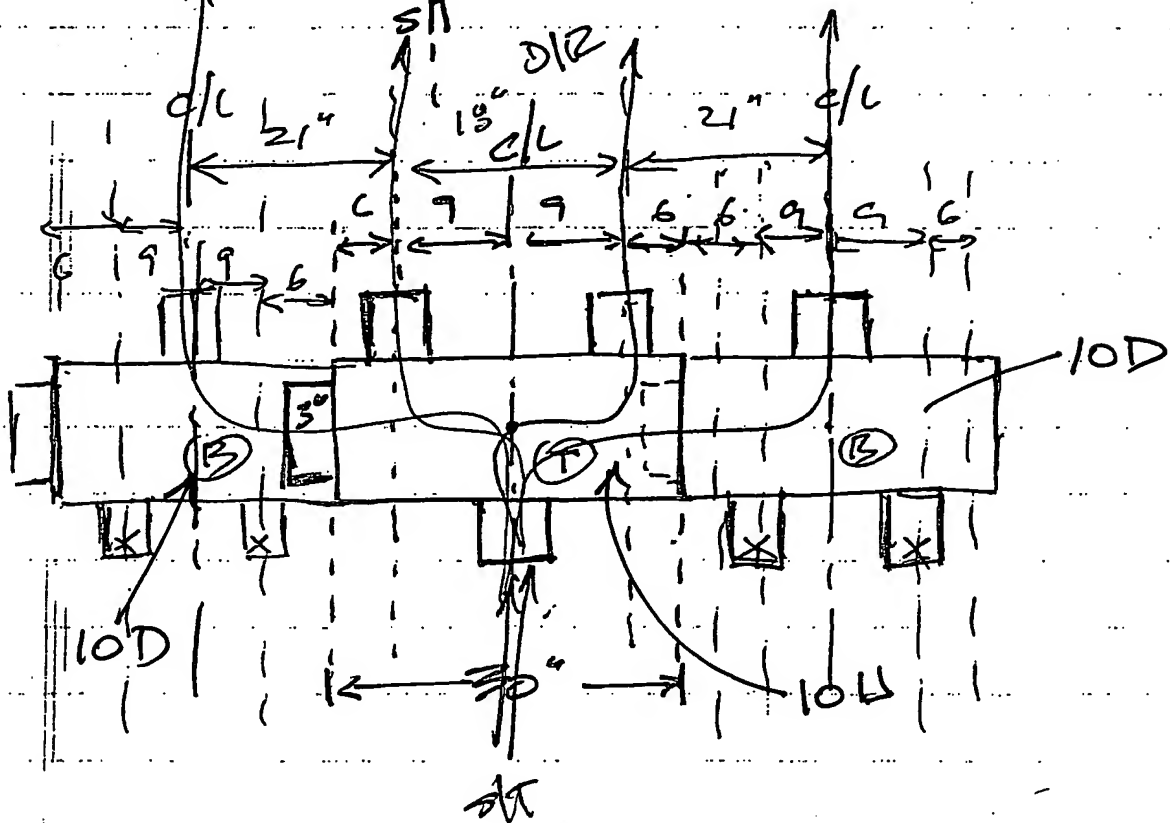 S/T
D/R
C/L
21"
18"
C/L
21"
C/L
6
9
9
6
6
9
9
6
6
9
9
6
3"
B
T
B
10D
X
X
X
X
10D
30"
10U
S/T